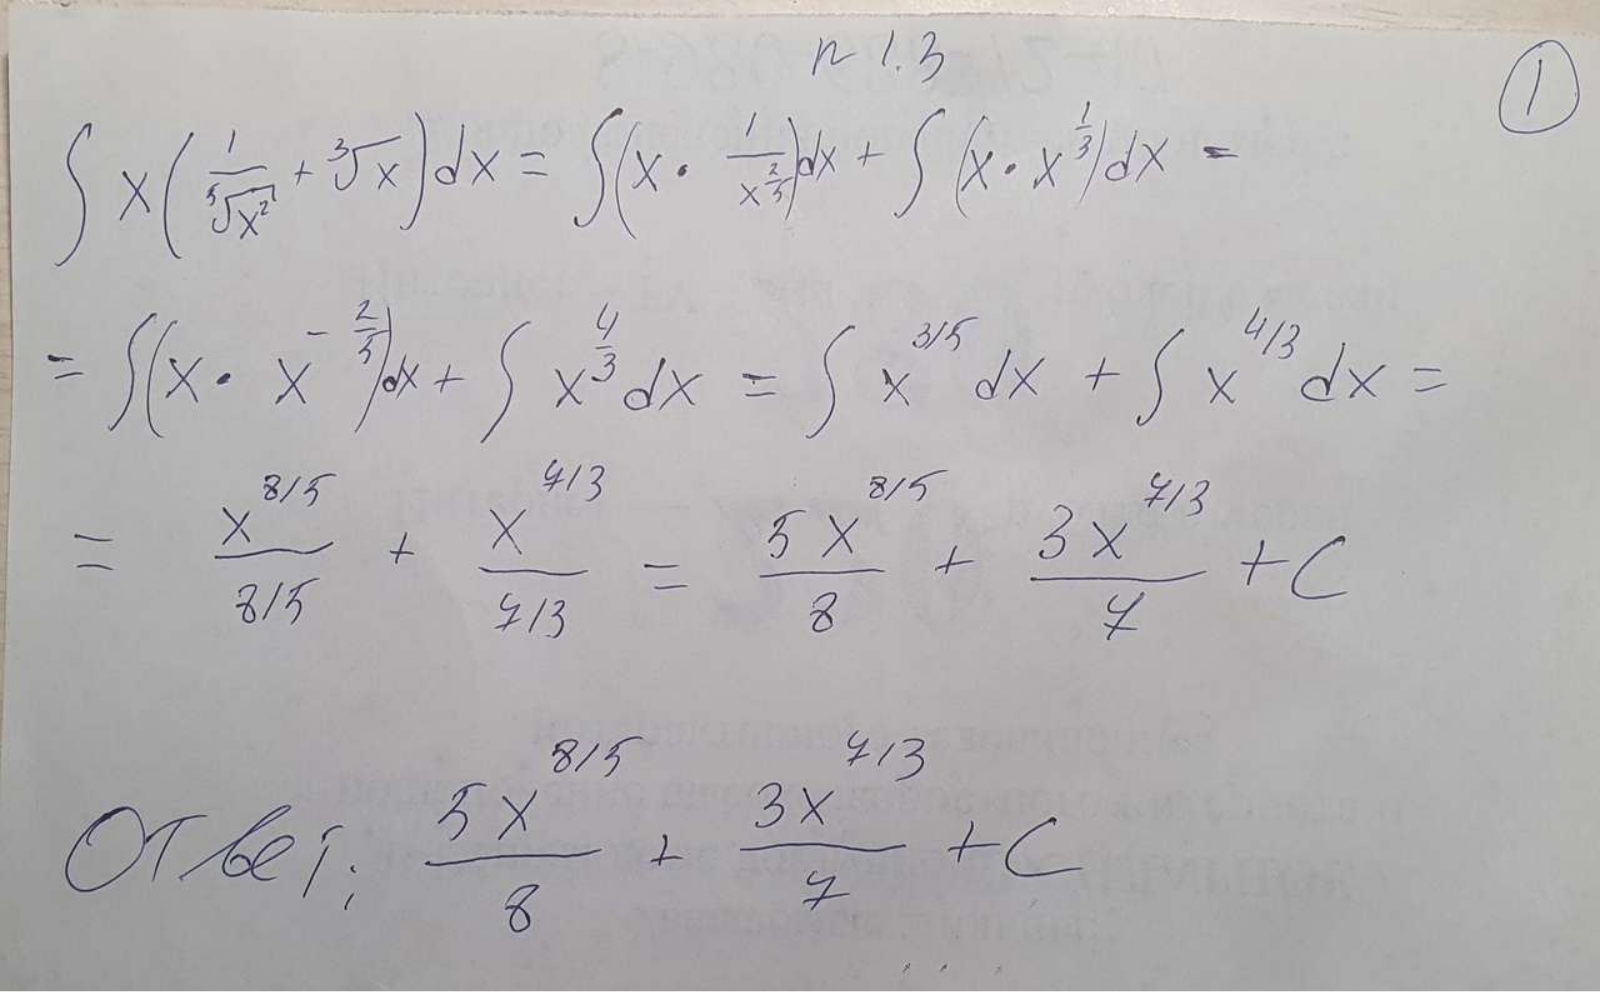 n 1.3
①
∫ x(1/⁵√x² + ³√x)dx = ∫(x · 1/x^(2/5))dx + ∫(x · x^(1/3))dx =
= ∫(x · x^(-2/5))dx + ∫ x^(4/3) dx = ∫ x^(3/5) dx + ∫ x^(4/3) dx =
= x^(8/5)/(8/5) + x^(7/3)/(7/3) = 5x^(8/5)/8 + 3x^(7/3)/7 + C
Ответ: 5x^(8/5)/8 + 3x^(7/3)/7 + C